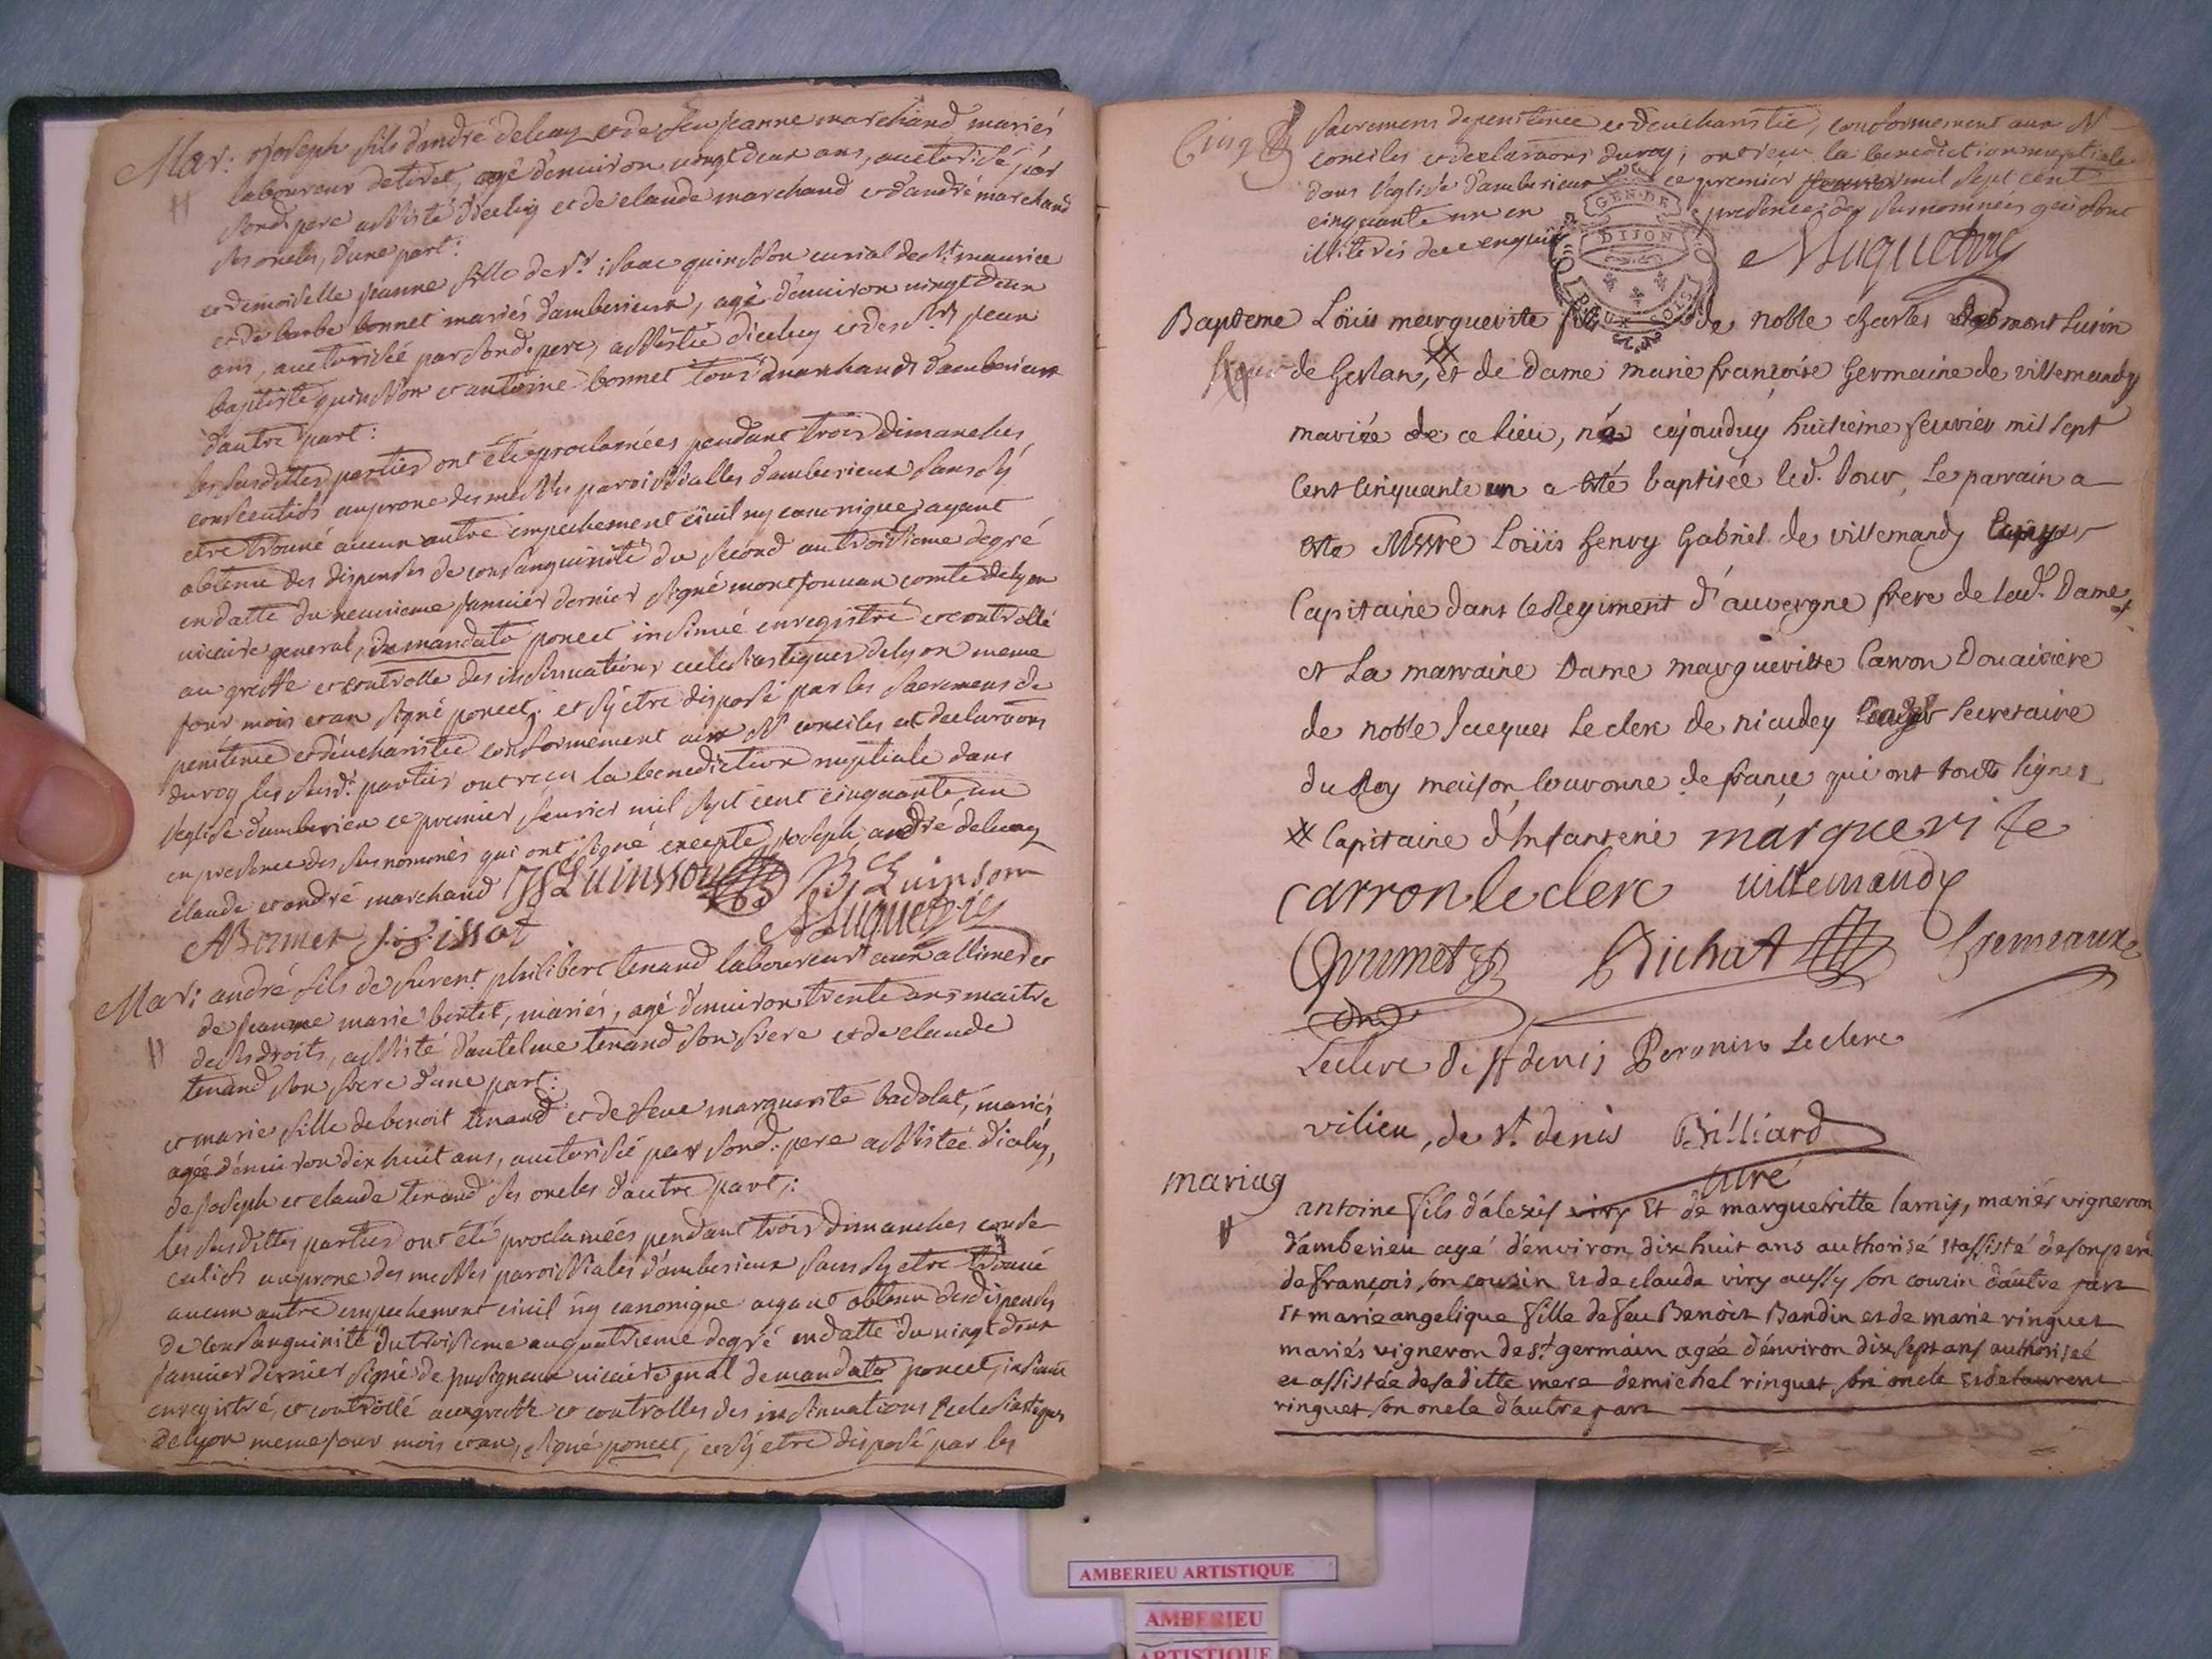 Mar: Joseph fils d'andré deleaz et de feu jeanne marchand mariés
laboureur de tiret, agé d'environ vingt deux ans, auctorisé par
sond. pere assisté d'iceluy et de claude marchand et d'andré marchand
ses oncles, d'une part:
et demoiselle jeanne fille de sr. isaac quinsson curial de st. maurice
et de barbe bonnet mariés d'amberieux, agé d'environ vingt deux
ans, auctorisée par sond. pere, assistée d'iceluy et des srs jean
baptiste quinsson et antoine bonnet tous marchands d'amberieux
d'autre part:
les susdittes parties ont été proclamées pendant trois dimanches
consecutifs au prone des messes paroissialles d'amberieux sans s'y
etre trouvé aucun autre empechement civil ny canonique, ayant
obtenu des dispenses de consanguinité du second au troisieme degré
en datte du neuvieme janvier dernier signé montjouvan comte de lyon
vicaire general, de mandato poncet insinué enregistré et controllé
au greffe et controlle des insinuations ecclesiastiques de lyon meme
jour mois et an signé poncet; et s'y etre disposé par les sacremens de
penitence et d'eucharistie conformement aux Sts conciles et declaraons
du roy les susd. parties ont reçu la benediction nuptiale dans
l'eglise d'amberieu ce premier feuvrier mil sept cent cinquante un
en presence des susnommés qui ont signé excepté joseph, andré deleaz
claude et andré marchand J Quinsson B, Quinson
A Bonnet
Mar: andré fils de furent philibert tenand laboureur aux allimes et
de jeanne marie bertet, mariés, agé d'environ trente ans maitre
de ses droits, assisté d'antelme tenand son frere et de claude
tenand son frere d'une part:
et marie fille de benoit tenand et de feue marguerite badolat, mariés,
agée d'environ dix huit ans, auctorisée par sond. pere assistée d'iceluy,
de joseph et claude tenand ses oncles d'autre part;
les susdittes parties ont été proclamées pendant trois dimanches conse
cutifs au prone des messes paroissiales d'amberieux sans s'y etre trouvé
aucun autre empechement civil ny canonique ayant obtenu des dispenses
de consanguinité du troisieme au quatrieme degré en datte du vingt deux
janvier dernier signé de pusigneux vicaire gnal de mandato poncet, insinué
enregistré, et controllé au greffe et controlles des insinuations Ecclesiastiques
de lyon meme jour mois et an, signé poncet, et s'y etre disposé par les
Cinq
sacremens de penitence et d'eucharistie, conformement aux St
conciles et declaraons du roy, ont reçu la benediction nuptiale
dans l'eglise d'amberieux ce premier feuvrier mil sept cent
cinquante un en presence des susnommés qui sont
illiterés de ce enquis
GEN DE
DIJON
DEUX SOLS
Bapteme Loüis marguerite de noble charles de montlusin
de Gerlan, et de Dame marie françoise Germaine de villemandy
mariée de ce lieu, née cejourduy huitieme feuvrier mil sept
Cent Cinquante un a esté baptisée led. Jour, Le parrain a
esté Messre Loüis henry Gabriel de villemandy
Capitaine dans le Regiment d'auvergne frere de lad. Dame
et La marraine Dame margueritte Carron Douairiere
de noble Jacques Leclerc de nicudey secretaire
du Roy maison, Couronne de france qui ont touts signes
# Capitaine d'Infanterie marguerite
Carron leclerc villemandy
Grumet Bichat Gremeaux
Leclerc de st denis Peronin Leclerc
vilieu, de st. denis Billiard
Curé
mariag
antoine fils d'alexis viry Et de margueritte lamy, mariés vigneron
d'amberieu agé d'environ dix huit ans authorisé et assisté de son pere
de françois son cousin et de claude viry aussy son cousin d'autre part
Et marie angelique fille de feu Benoit Bandin et de marie ringuet
mariés vigneron de st germain agée d'environ dix sept ans authorisée
et assistée de saditte mere de michel ringuet son oncle et de laurent
ringuet son oncle d'autre part
AMBERIEU ARTISTIQUE
AMBERIEU
ARTISTIQUE